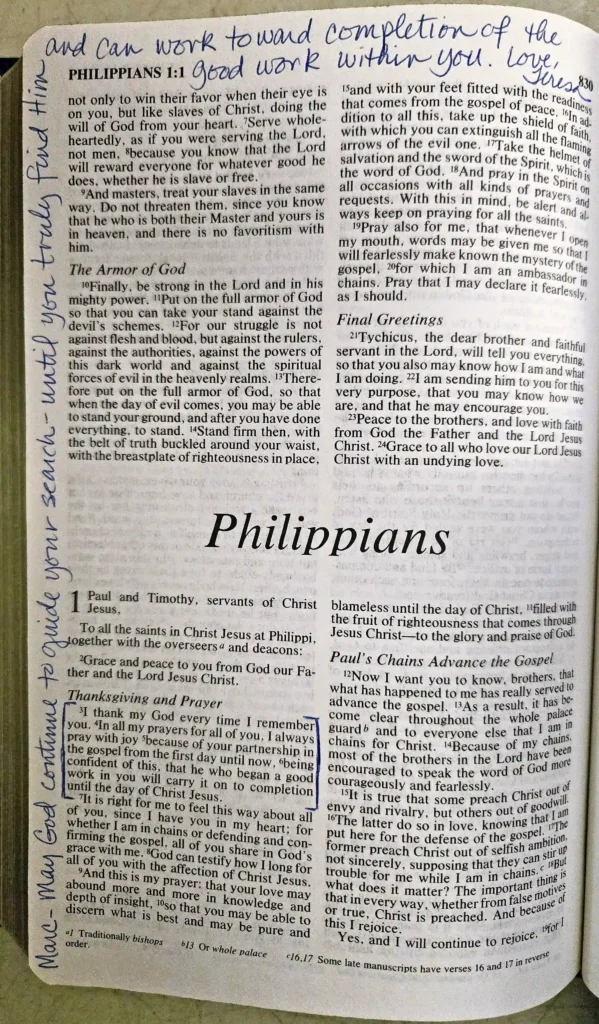 Marc- May God continue to guide your search- until you truly find Him
and can work toward completion of the
good work within you. Love,
Teresa
PHILIPPIANS 1:1
830
not only to win their favor when their eye is
on you, but like slaves of Christ, doing the
will of God from your heart. ⁷Serve whole-
heartedly, as if you were serving the Lord,
not men, ⁸because you know that the Lord
will reward everyone for whatever good he
does, whether he is slave or free.
⁹And masters, treat your slaves in the same
way. Do not threaten them, since you know
that he who is both their Master and yours is
in heaven, and there is no favoritism with
him.
The Armor of God
¹⁰Finally, be strong in the Lord and in his
mighty power. ¹¹Put on the full armor of God
so that you can take your stand against the
devil's schemes. ¹²For our struggle is not
against flesh and blood, but against the rulers,
against the authorities, against the powers of
this dark world and against the spiritual
forces of evil in the heavenly realms. ¹³There-
fore put on the full armor of God, so that
when the day of evil comes, you may be able
to stand your ground, and after you have done
everything, to stand. ¹⁴Stand firm then, with
the belt of truth buckled around your waist,
with the breastplate of righteousness in place,
¹⁵and with your feet fitted with the readiness
that comes from the gospel of peace. ¹⁶In ad-
dition to all this, take up the shield of faith,
with which you can extinguish all the flaming
arrows of the evil one. ¹⁷Take the helmet of
salvation and the sword of the Spirit, which is
the word of God. ¹⁸And pray in the Spirit on
all occasions with all kinds of prayers and
requests. With this in mind, be alert and al-
ways keep on praying for all the saints.
¹⁹Pray also for me, that whenever I open
my mouth, words may be given me so that I
will fearlessly make known the mystery of the
gospel, ²⁰for which I am an ambassador in
chains. Pray that I may declare it fearlessly,
as I should.
Final Greetings
²¹Tychicus, the dear brother and faithful
servant in the Lord, will tell you everything,
so that you also may know how I am and what
I am doing. ²²I am sending him to you for this
very purpose, that you may know how we
are, and that he may encourage you.
²³Peace to the brothers, and love with faith
from God the Father and the Lord Jesus
Christ. ²⁴Grace to all who love our Lord Jesus
Christ with an undying love.
Philippians
1 Paul and Timothy, servants of Christ
Jesus,
To all the saints in Christ Jesus at Philippi,
together with the overseersᵃ and deacons:
²Grace and peace to you from God our Fa-
ther and the Lord Jesus Christ.
Thanksgiving and Prayer
³I thank my God every time I remember
you. ⁴In all my prayers for all of you, I always
pray with joy ⁵because of your partnership in
the gospel from the first day until now, ⁶being
confident of this, that he who began a good
work in you will carry it on to completion
until the day of Christ Jesus.
⁷It is right for me to feel this way about all
of you, since I have you in my heart; for
whether I am in chains or defending and con-
firming the gospel, all of you share in God's
grace with me. ⁸God can testify how I long for
all of you with the affection of Christ Jesus.
⁹And this is my prayer: that your love may
abound more and more in knowledge and
depth of insight, ¹⁰so that you may be able to
discern what is best and may be pure and
blameless until the day of Christ, ¹¹filled with
the fruit of righteousness that comes through
Jesus Christ—to the glory and praise of God.
Paul's Chains Advance the Gospel
¹²Now I want you to know, brothers, that
what has happened to me has really served to
advance the gospel. ¹³As a result, it has be-
come clear throughout the whole palace
guardᵇ and to everyone else that I am in
chains for Christ. ¹⁴Because of my chains,
most of the brothers in the Lord have been
encouraged to speak the word of God more
courageously and fearlessly.
¹⁵It is true that some preach Christ out of
envy and rivalry, but others out of goodwill.
¹⁶The latter do so in love, knowing that I am
put here for the defense of the gospel. ¹⁷The
former preach Christ out of selfish ambition,
not sincerely, supposing that they can stir up
trouble for me while I am in chains.ᶜ ¹⁸But
what does it matter? The important thing is
that in every way, whether from false motives
or true, Christ is preached. And because of
this I rejoice.
Yes, and I will continue to rejoice, ¹⁹for I
ᵃ1 Traditionally bishops ᵇ13 Or whole palace ᶜ16,17 Some late manuscripts have verses 16 and 17 in reverse
order.